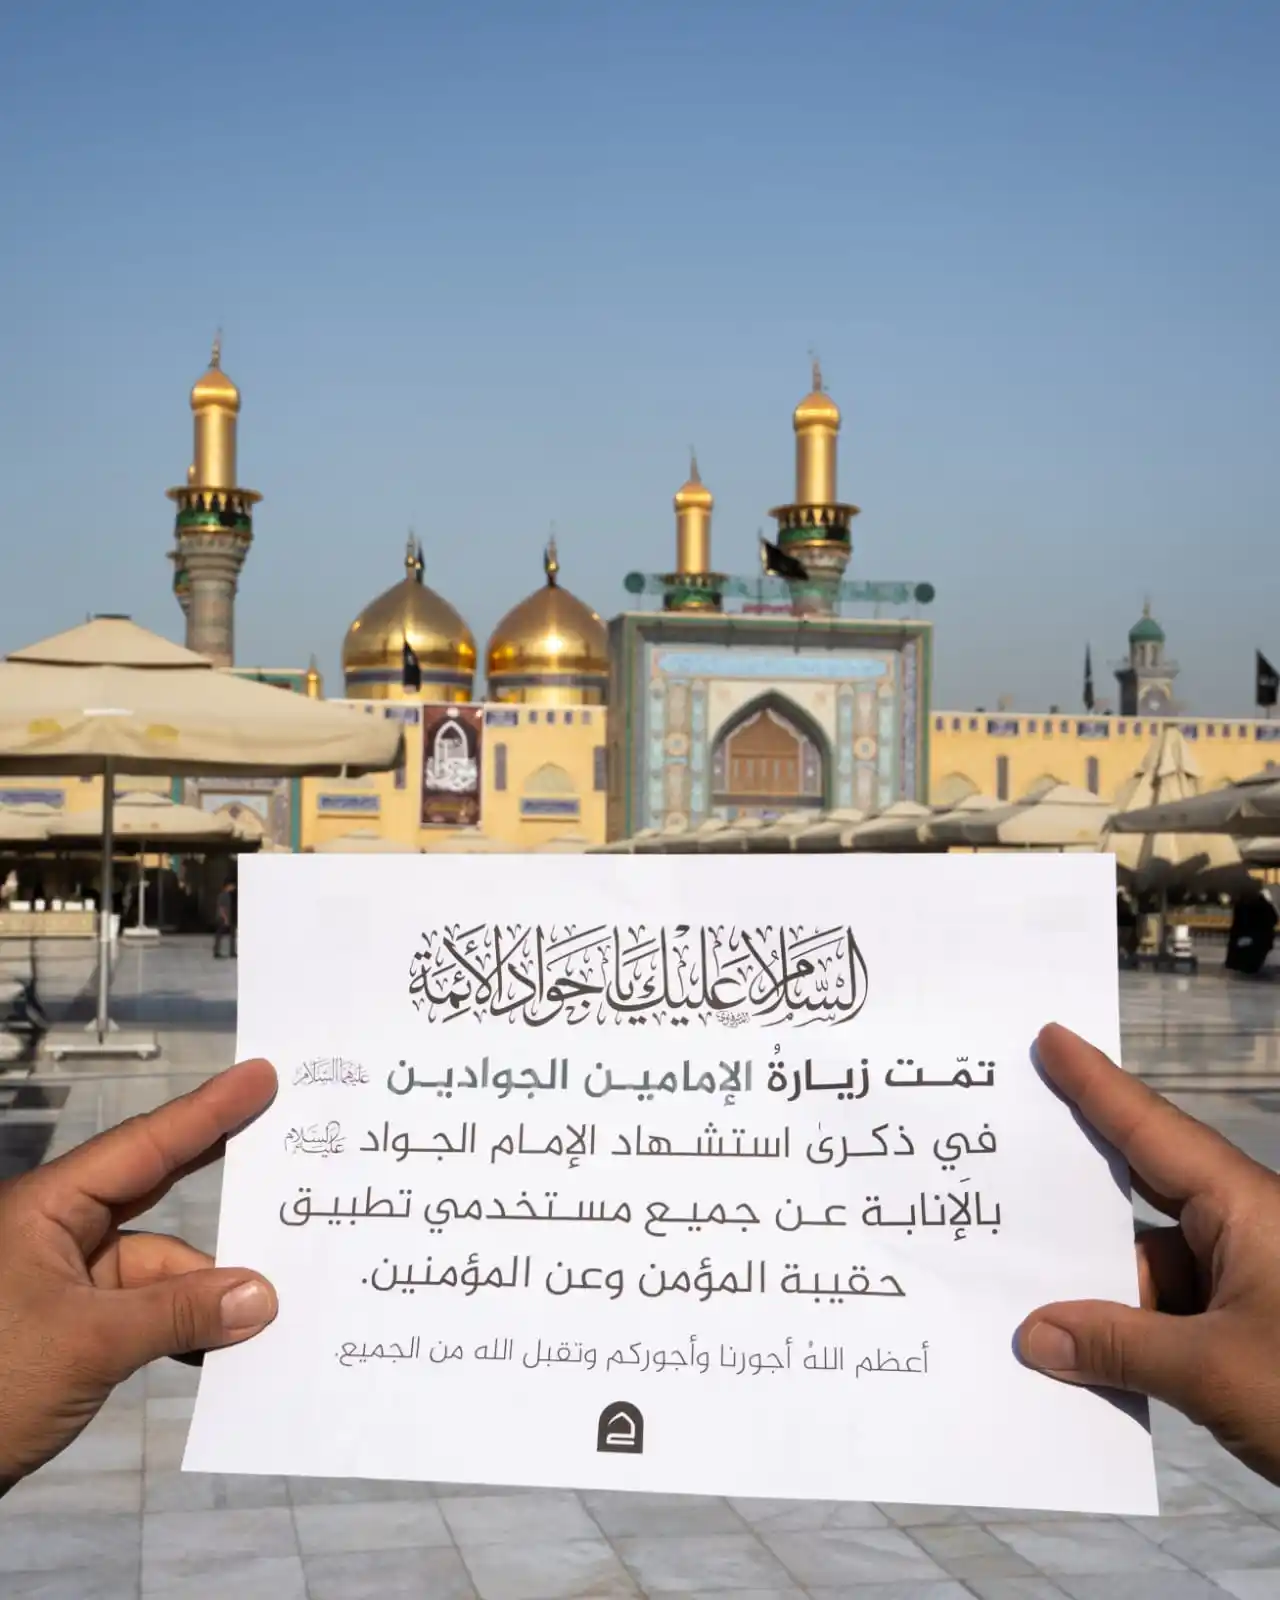 السَّلامُ عَلَيْكَ يَا جَوَادَ الأَئِمَّة
تمّت زيارةُ الإمامين الجوادين عليهما السلام
في ذكرىٰ استشهاد الإمام الجواد عليه السلام
بالإنابة عن جميع مستخدمي تطبيق
حقيبة المؤمن وعن المؤمنين.
أعظم اللهُ أجورنا وأجوركم وتقبل الله من الجميع.